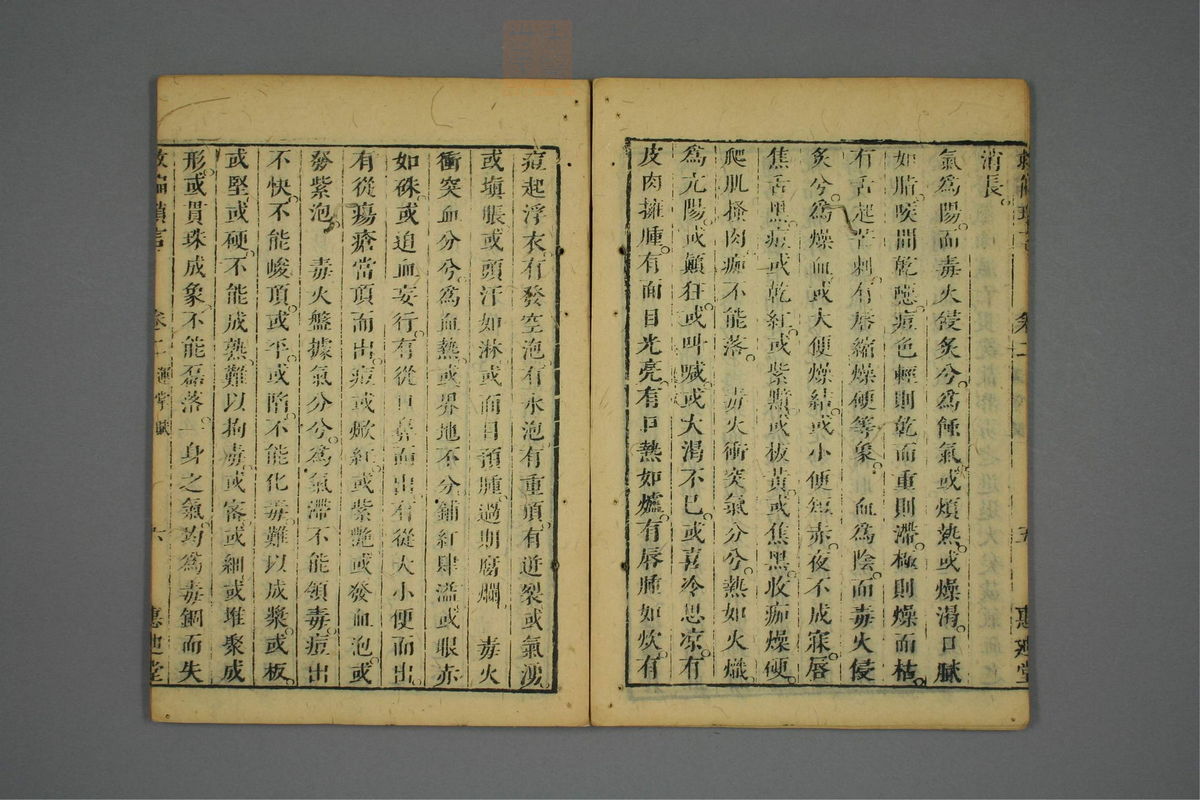 消長。
氣為陽。而毒火侵炙兮。為蝕氣。或煩熱。或燥渴。口膩
如脂。喉間乾噁。痘色輕則乾而重則滯。極則燥而枯。
有舌起芒刺。有唇縮燥硬等象。血為陰。而毒火侵
炙兮。為燥血。或大便燥結。或小便短赤。夜不成寐。唇
焦舌黑。痘或乾紅。或紫黯。或板黃。或焦黑。收痂燥硬。
爬肌搔肉。痂不能落。毒火衝突氣分兮。熱如火熾。
為亢陽。或顛狂。或叫喊。或大渴不已。或喜冷思凉。有
皮肉擁腫。有面目光亮。有口熱如爐。有唇腫如炊。有
卷二
五
痘起浮衣。有發空泡。有水泡。有重頂。有迸裂。或氣湧。
或塡脹。或頭汗如淋。或面目預腫。過期腐爛。毒火
衝突血分兮。為血熱。或界地不分。鋪紅肆溢。或眼赤
如硃。或迫血妄行。有從口鼻而出。有從大小便而出。
有從瘍瘡當頂而出。痘或焮紅。或紫艷。或發血泡。或
發紫泡。毒火盤據氣分兮。為氣滯。不能領毒。痘出
不快。不能峻頂。或平或陷。不能化毒。難以成漿。或板。
或堅或硬。不能成熟。難以拘毒。或密或細。或堆聚成
形。或貫珠成象。不能磊落。一身之氣。均為毒錮而失
救偏瑣言
卷二
運掌賦
六
惠迪堂